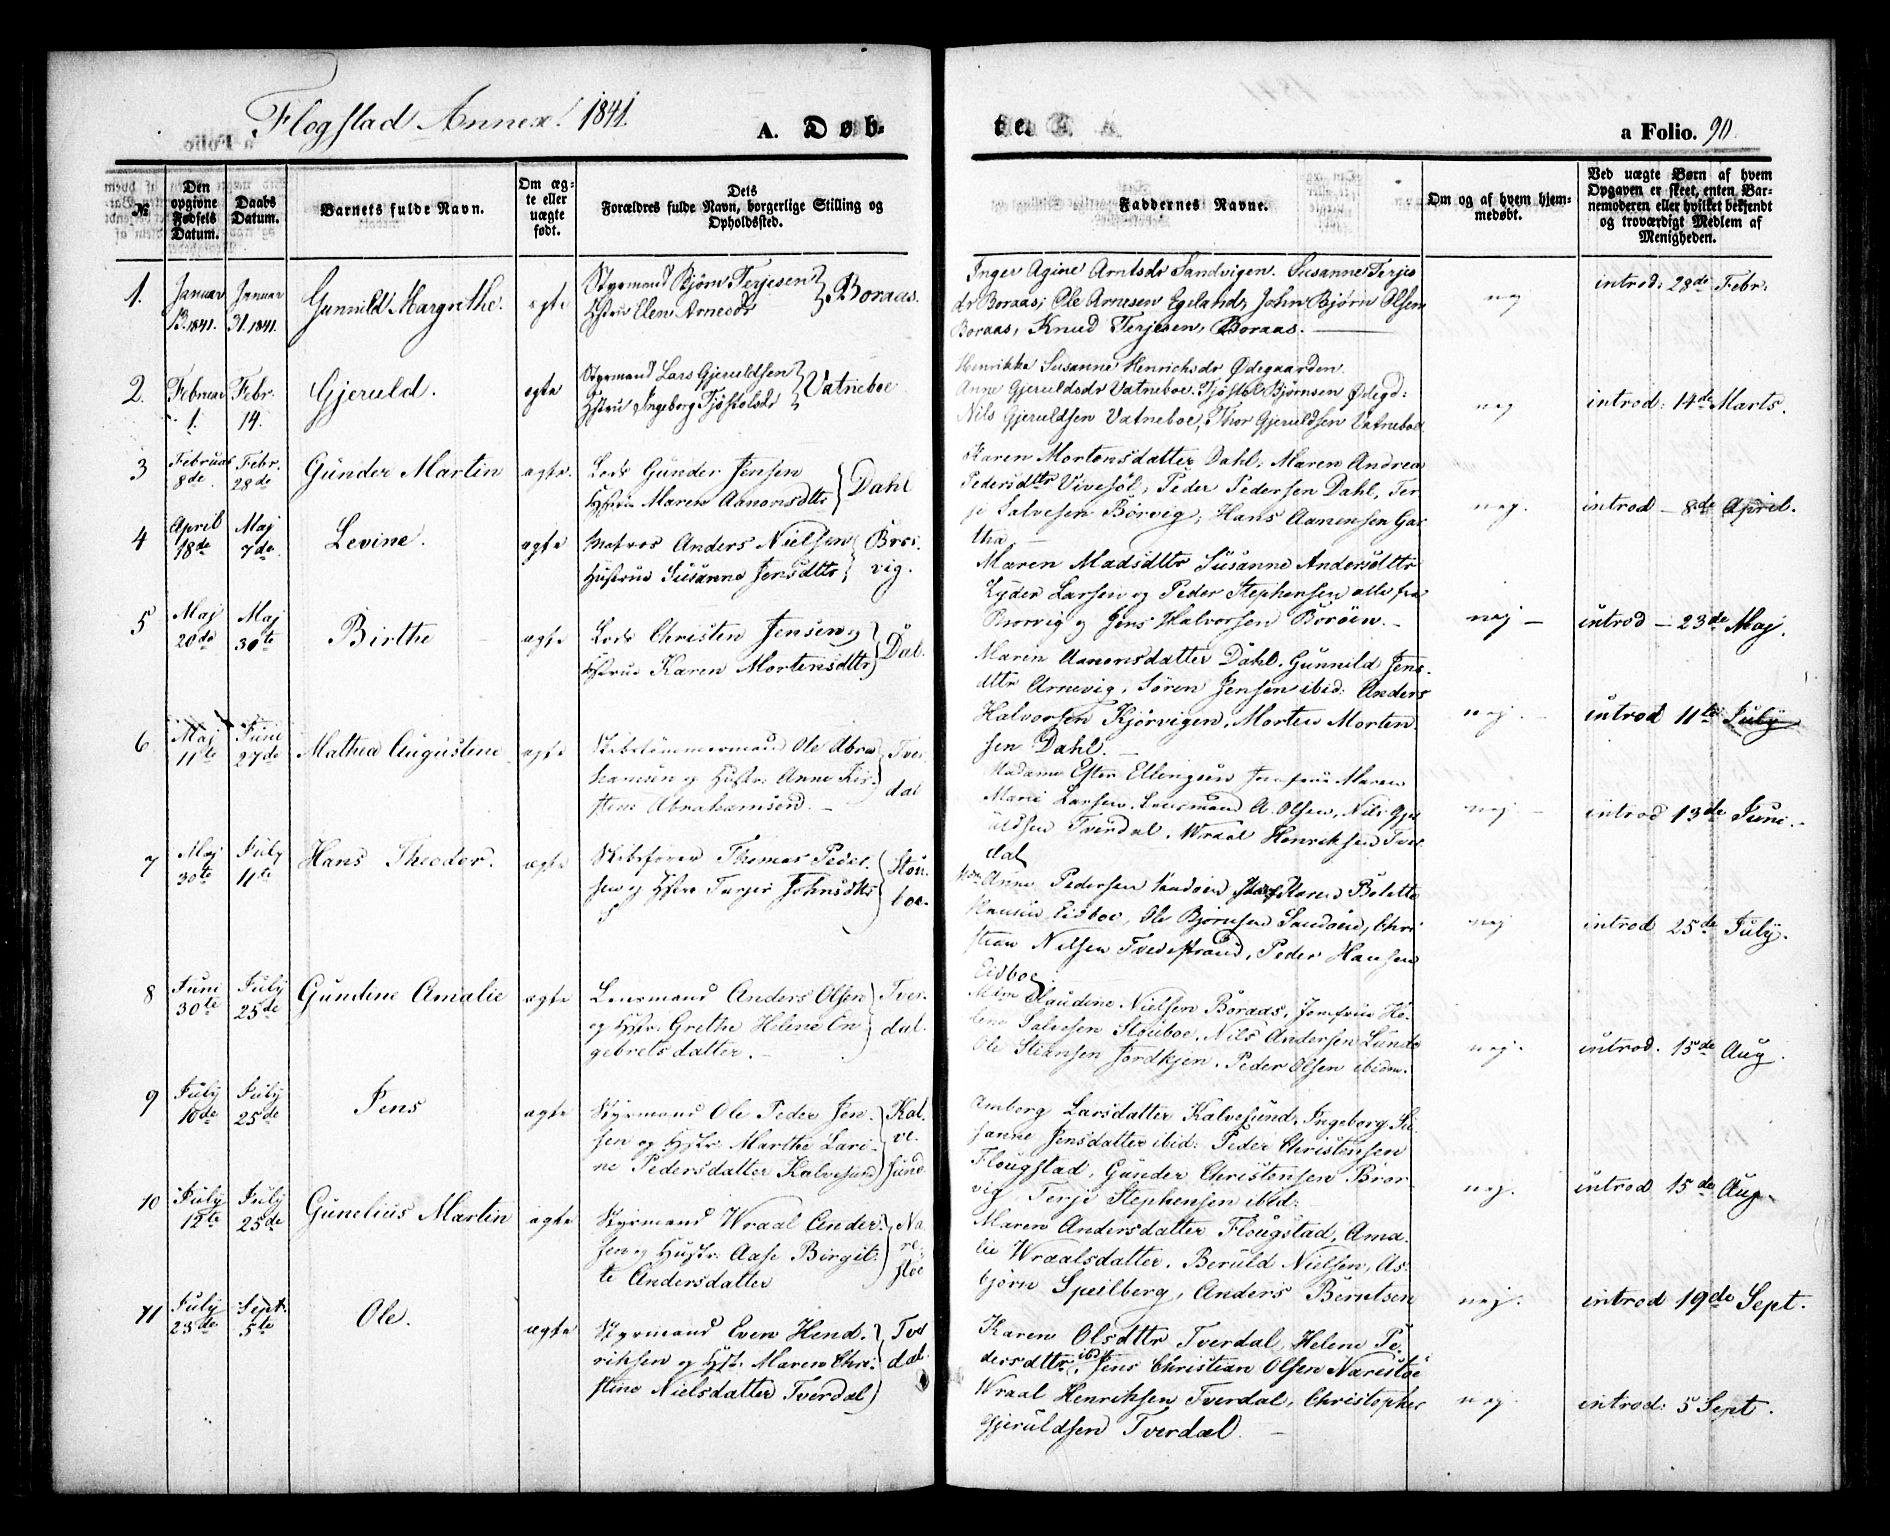 Flogstad Annex. 1841.
A. Døb-
te.
a Folio. 90.
№
Den opgivne Fødsels Datum.
Daabs Datum.
Barnets fulde Navn.
Om ægte eller uægte født.
Dets Forældres fulde Navn, borgerlige Stilling og Opholdssted.
Faddernes Navne.
Om og af hvem hjemmedøbt.
Ved uægte Børn af hvem Opgaven er skeet, enten Barnemoderen eller hvilket bekjendt og troværdigt Medlem af Menigheden.
1.
Januar 13. 1841.
Januar 31. 1841.
Gunnild Margrethe.
ægte
Styrmand Bjørn Terjesen
Hstru Elen Arnesdr
Boraas.
Inger Agine Arntsdr Sandvigen. Susanne Terjes
dr Boraas; Ole Arnesen Egeland; John Bjørn Olsen
Boraas, Knud Terjesen, Boraas.
nej
introd: 28de Febr:
2.
Februar 1.
Febr. 14.
Gjeruld.
ægte
Styrmand Lars Gjeruldsen
Hstru Ingeborg Tjøstolsdr
Vatneboe
Henrikke Susanne Henrichsdr Ødegaarden.
Anne Gjeruldsdr Vatneboe. Tjøstol Bjørnsen Ødegd:
Nils Gjeruldsen Vatneboe, Thor Gjeruldsen Vatneboe
nej
introd: 14de Marts.
3
Februar 8de
Febr. 28de
Gunder Martin
ægte.
Lods Gunder Jensen
Hstru Maren Aanonsdttr
Dahl
Karen Mortensdatter Dahl, Maren Andrea
Pedersdttr Vivesøl, Peder Pedersen Dahl, Ter
je Salvesen Børvig; Hans Aanensen Gar
tha
nej.
introd – 8de April.
4
April 18de
Maj 7de
Levine.
ægte
Matros Anders Nielsen
Hustrue Susanne Jensdttr
Bror
vig.
Maren Madsdttr Susanne Andersdttr
Lyder Larsen og Peder Stephensen alle fra
Brorvig og Jens Halvorsen Borøen. –
nej –
introd – 23de Maj.
5
Maj 20de
Maj 30te
Birthe
ægte
Lods Christen Jensen og
Hstrue Karen Mortensdttr
Dal.
Maren Aanonsdatter Dahl. Gunnild Jens
dttr Arnevig, Søren Jensen ibid: Anders
Halvorsen Kjørvigen, Morten Morten
sen Dahl. –
nej. –
introd 11te July
6
Maj 11te
Juni 27de
Mathea Augustine
ægte
Skibstømmermand Ole Abra
hamsen og Hustr: Anne Kir
stine Abrahamsen. –
Tver
dal
Madame Ester Ellingsen Jomfrue Maren
Marie Larsen, Lensmand A. Olsen, Nils Gje
ruldsen Tverdal, Wraal Henriksen Tver
dal
nej –
introd 13de Juni. –
7
Maj 30te
July 11te
Hans Theodor.
ægte
Skibsfører Thomas Peder
sen og Hstru Terjer Johnsdttr
Støu
boe.
Anne Pedersen Sandøen Jomf Karen Bolette
Hansen Eidboe, Ole Bjørnsen Sandøen, Chri
stian Nilsen Tvedestrand, Peder Hansen
Eidboe.
nej
introd 25de July.
8
Juni 30te
July 25de
Gundine Amalie
ægte
Lensmand Anders Olsen
og Hstr: Grethe Helene En
gebretsdatter. –
Tver
dal.
Mdm Claudine Nielsen Boraas, Jomfrue He
lene Salvesen Støuboe, Nils Andersen Lunde
Ole Stiansen Jordkjen, Peder Olsen ibidm.
nej.
introd. 15de Aug.
9
July 10de
July 25de
Jens
ægte
Styrmand Ole Peder Jen
sen og Hstr: Marthe Lari
ne Pedersdatter Kalvesund
Kal
ve
sund.
Amborg Larsdatter Kalvesund, Ingeborg Su
sanne Jensdatter ibid: Peder Christensen
Flougstad, Gunder Christensen Bror
vig, Terje Stephensen ibid:
nej.
introd 15de Aug.
10
July 12te
July 25de
Gunelius Martin
ægte
Styrmand Wraal Ander
sen og Hustr: Aase Birgit
te Andersdatter
Na
re
støe
Maren Andersdatter Flougstad, Ama
lie Wraalsdatter. Beruld Nielsen, As
bjørn Speilberg, Anders Berntsen
nej.
introd 19de Sept.
11
July 23de
Sept. 5te
Ole.
ægte
Styrmand Even Hend
riksen og Hstr: Maren Chri
stine Nielsdatter Tverdal
Tver
dal.
Karen Olsdttr Tverdal, Helene Pe
dersdttr ibd: Jens Christian Olsen Narestøe
Wraal Henriksen Tverdal, Christopher
Gjeruldsen Tverdal. –
nej.
introd: 5 Sept.